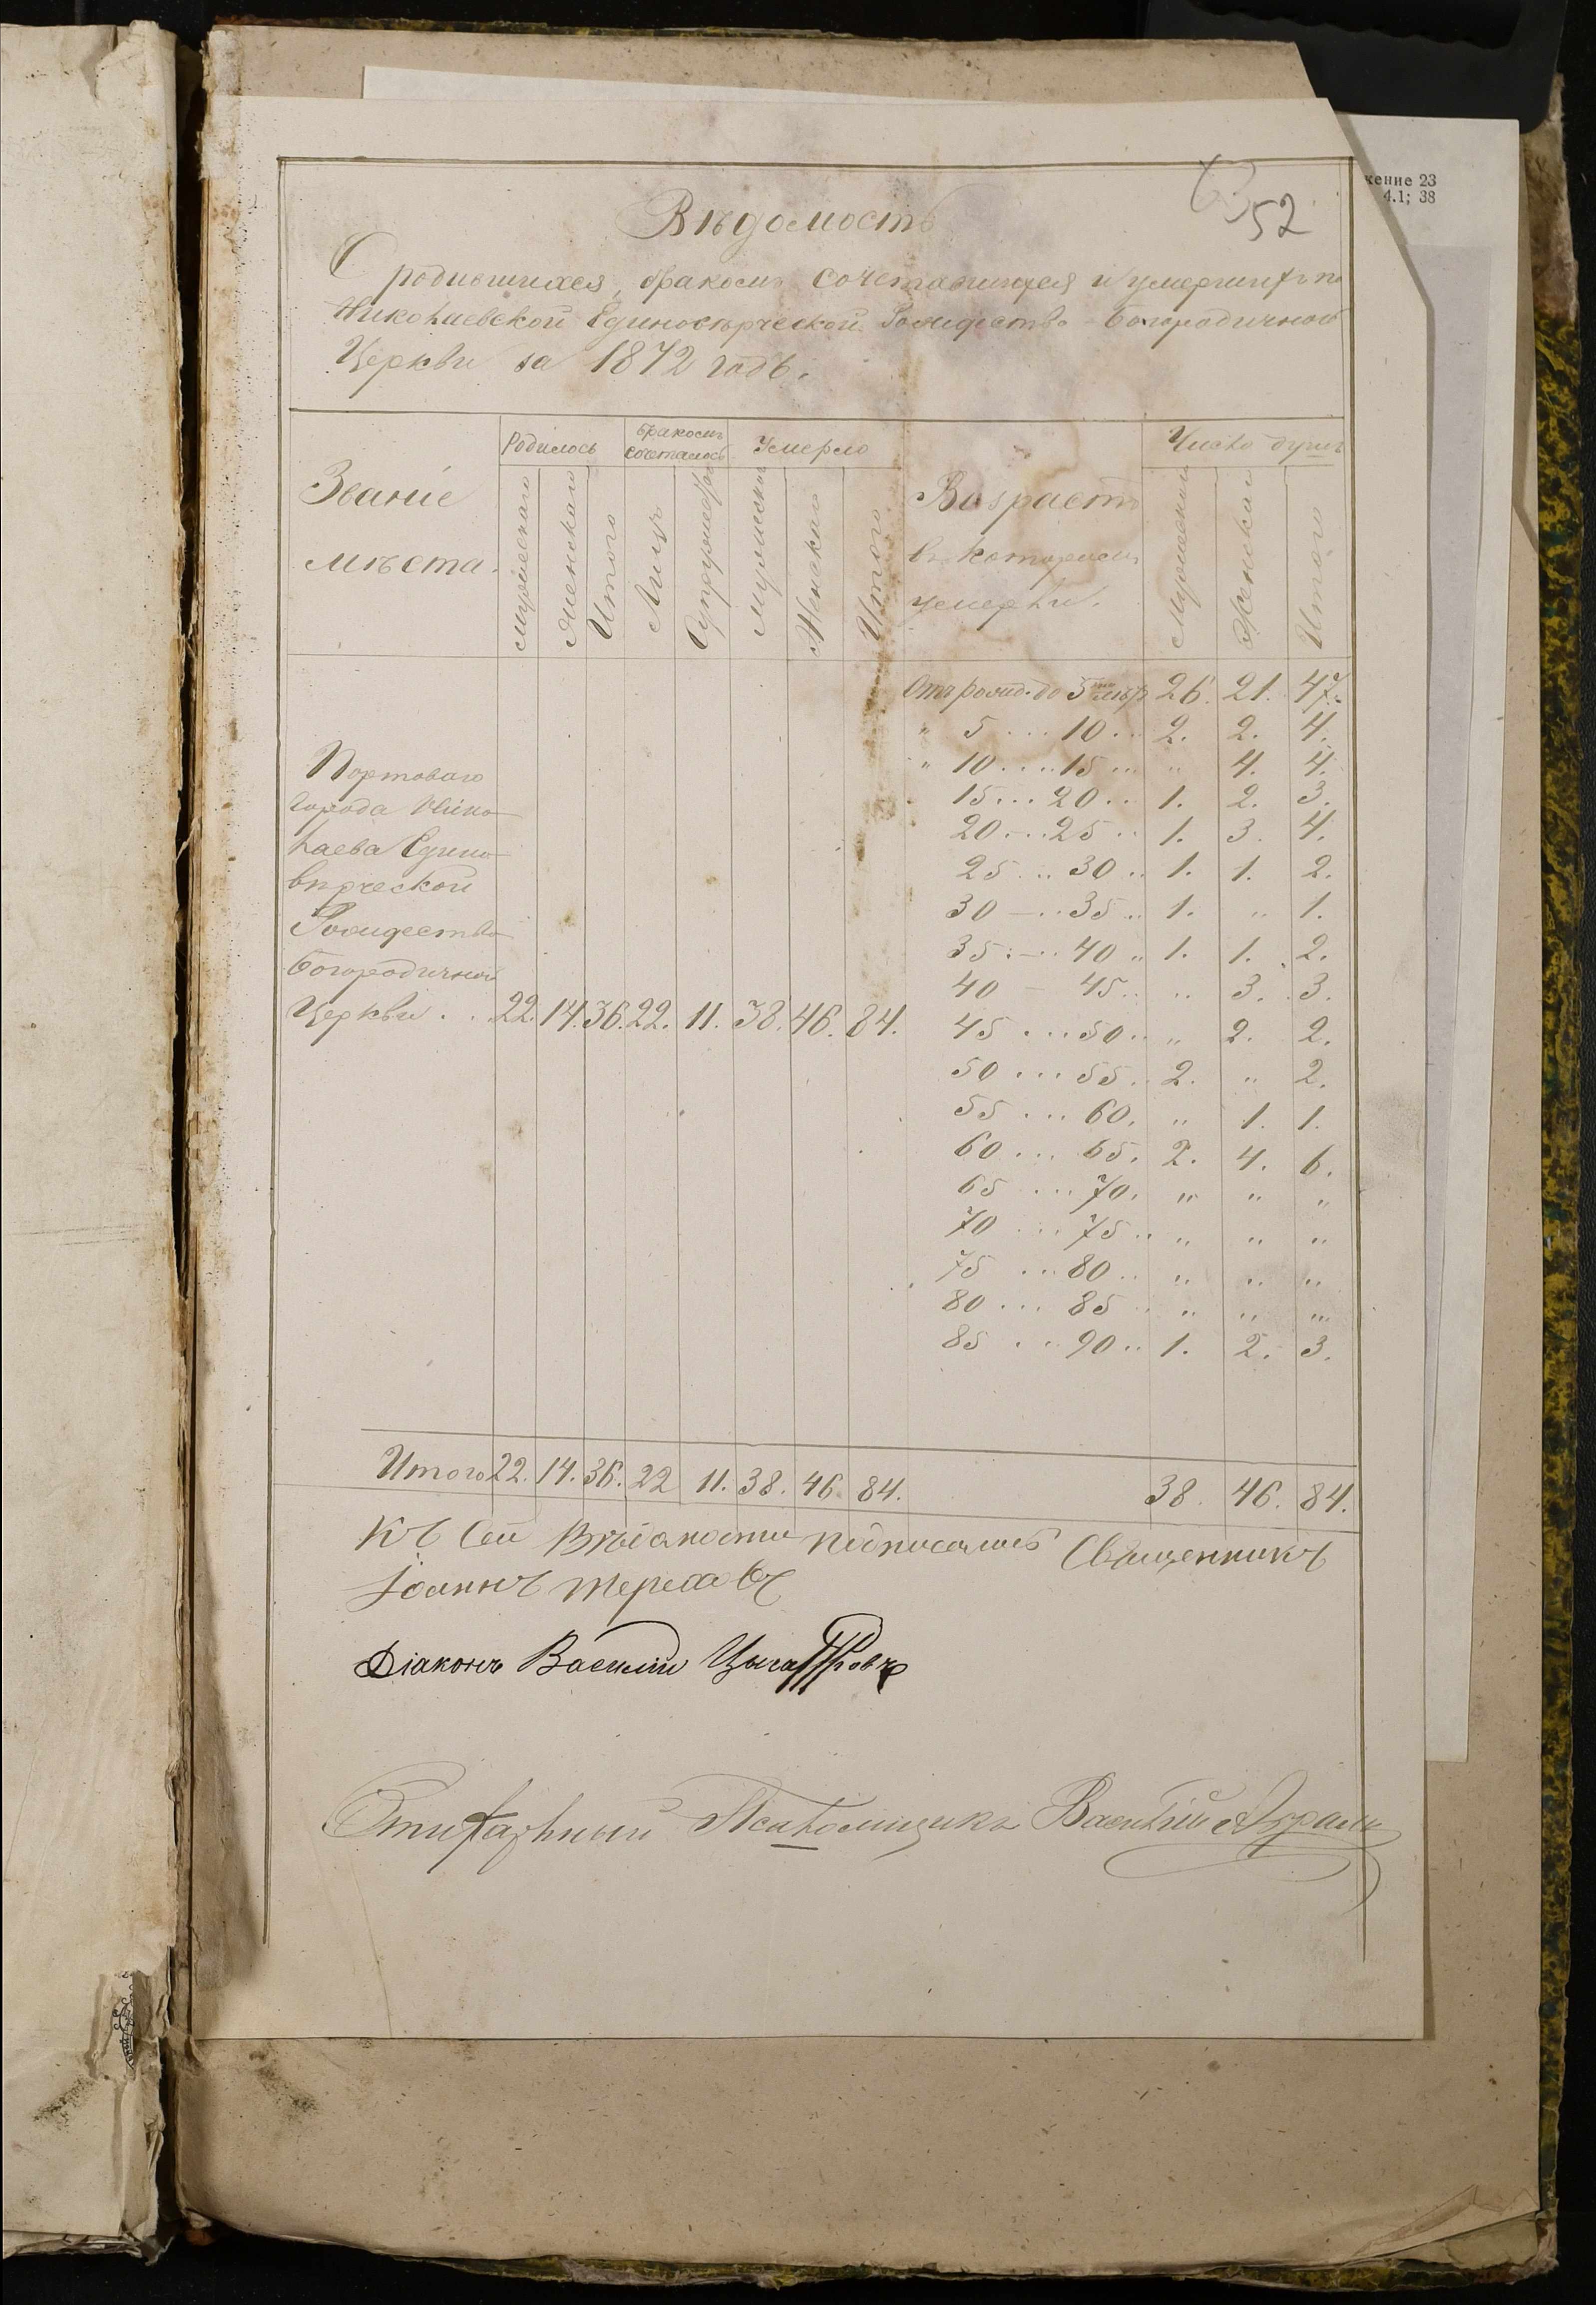 52
кение 23
4.1; 38
Вѣдомость
О родившихся, бракомъ сочетавшихся и умершихъ по
Николаевской Единовѣрческой Рождество-Богородичной
Церкви за 1872 годъ.
Званіе мѣста.
Родилось
Бракомъ сочеталось
Умерло
Возрастъ въ которомъ умерли.
Число душъ
Мужескаго
Женскаго
Итого
Лицъ
Супружествъ
Мужескаго
Женскаго
Итого
Мужескаго
Женскаго
Итого
Отъ рожд. до 5ти лѣтъ 26. 21. 47.
" 5 ... 10 ... 2. 2. 4.
" 10 .... 15 ... " 4. 4.
15 ... 20 .. 1. 2. 3.
20 ... 25 .. 1. 3. 4.
25 ... 30 .. 1. 1. 2.
30 — .. 35 .. 1. " 1.
35 . — .. 40 .. 1. 1. 2.
40 — 45 .. " 3. 3.
45 ... 50 .. " 2. 2.
50 ... 55 .. 2. " 2.
55 ... 60. " 1. 1.
60 ... 65. 2. 4. 6.
65 ... 70. " " "
70 ... 75 .. " " "
75 ... 80 .. " " "
80 ... 85 .. " " "
85 ... 90 .. 1. 2. 3.
Портоваго
города Нико-
лаева Едино-
вѣрческой
Рождество-
Богородичной
Церкви . . . 22. 14. 36. 22. 11. 38. 46. 84.
Итого 22. 14. 36. 22 11. 38. 46. 84. 38. 46. 84.
Къ Сей Вѣдомости подписались Священникъ
Іоаннъ
Діаконъ Василій
Псаломщикъ Василій